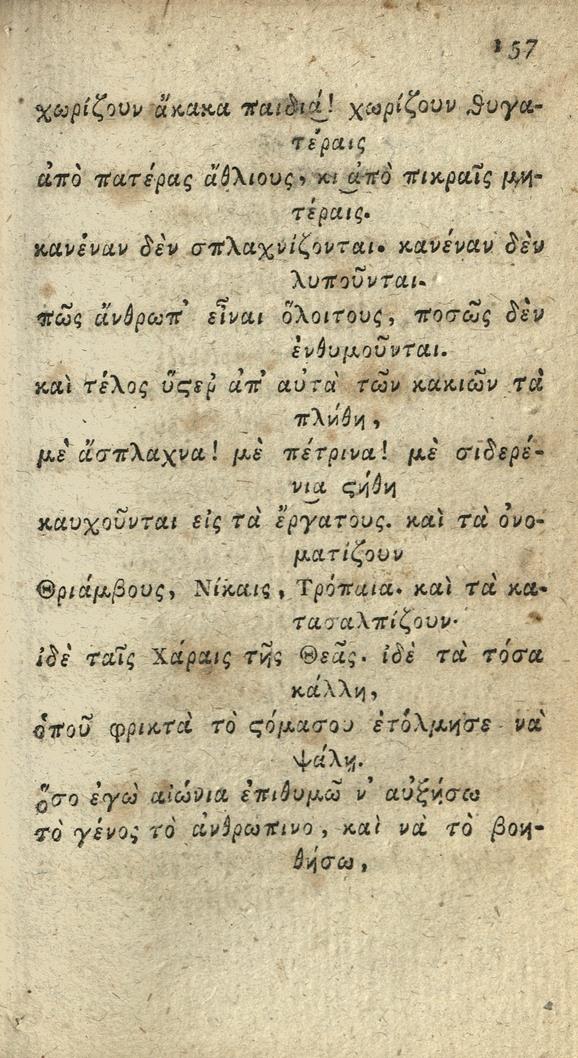 157
χωρίζουν ἄκακα παιδιά! χωρίζουν θυγα-
τέραις
ἀπὸ πατέρας ἄθλιους, κι ἀπὸ πικραῖς μη-
τέραις.
κανέναν δὲν σπλαχνίζονται. κανέναν δὲν
λυποῦνται.
πῶς ἄνθρωπ' εἶναι ὅλοιτους, ποσῶς δὲν
ἐνθυμοῦνται.
καὶ τέλος ὕςερ ἀπ' αὐτὰ τῶν κακιῶν τὰ
πλήθη,
μὲ ἄσπλαχνα! μὲ πέτρινα! μὲ σιδερέ-
νια ςήθη
καυχοῦνται εἰς τὰ ἔργατους. καὶ τὰ ὀνο-
ματίζουν
Θριάμβους, Νίκαις, Τρόπαια. καὶ τὰ κα-
τασαλπίζουν.
ἰδὲ ταῖς Χάραις τῆς Θεᾶς. ἰδὲ τὰ τόσα
κάλλη,
ὁποῦ φρικτὰ τὸ ςόμασου ἐτόλμησε νὰ
ψάλῃ.
ὅσο ἐγὼ αἰώνια ἐπιθυμῶ ν' αὐξήσω
τὸ γένος τὸ ἀνθρωπινο, καὶ νὰ τὸ βοη-
θήσω,